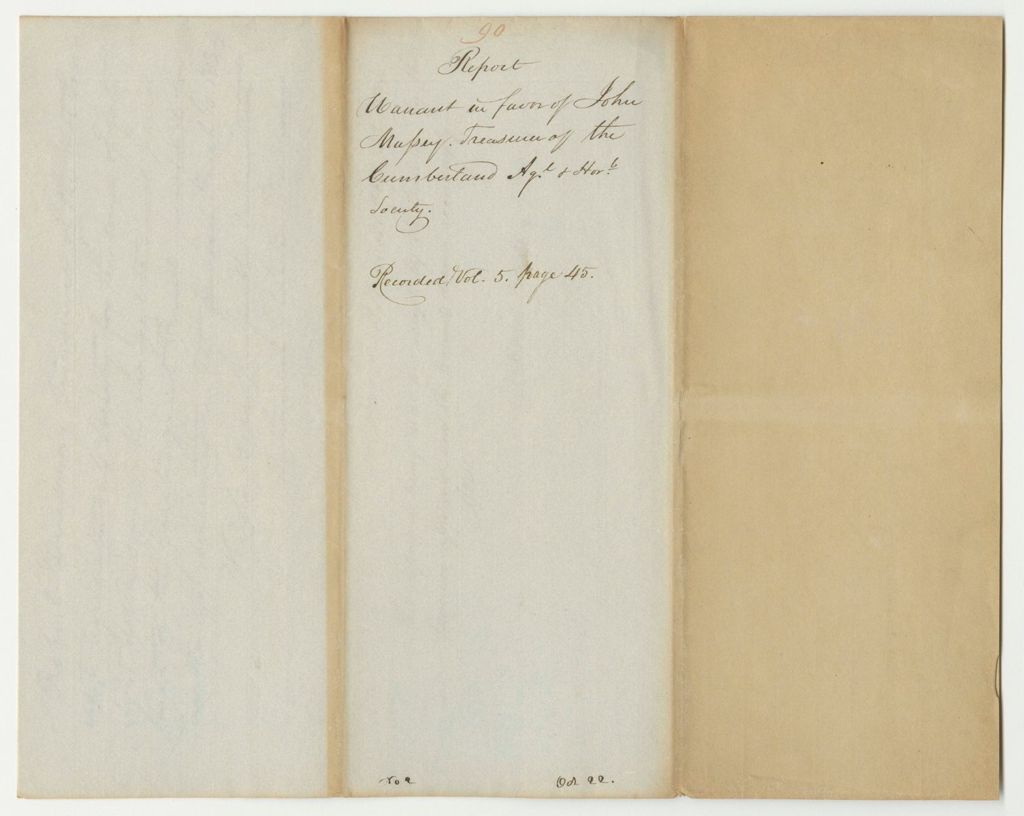 90
Report
Warrant in favor of John
Massey. Treasurer of the
Cumberland Agl. & Hort.
Society.
Recorded Vol. 5. page 45.
Oct 22.